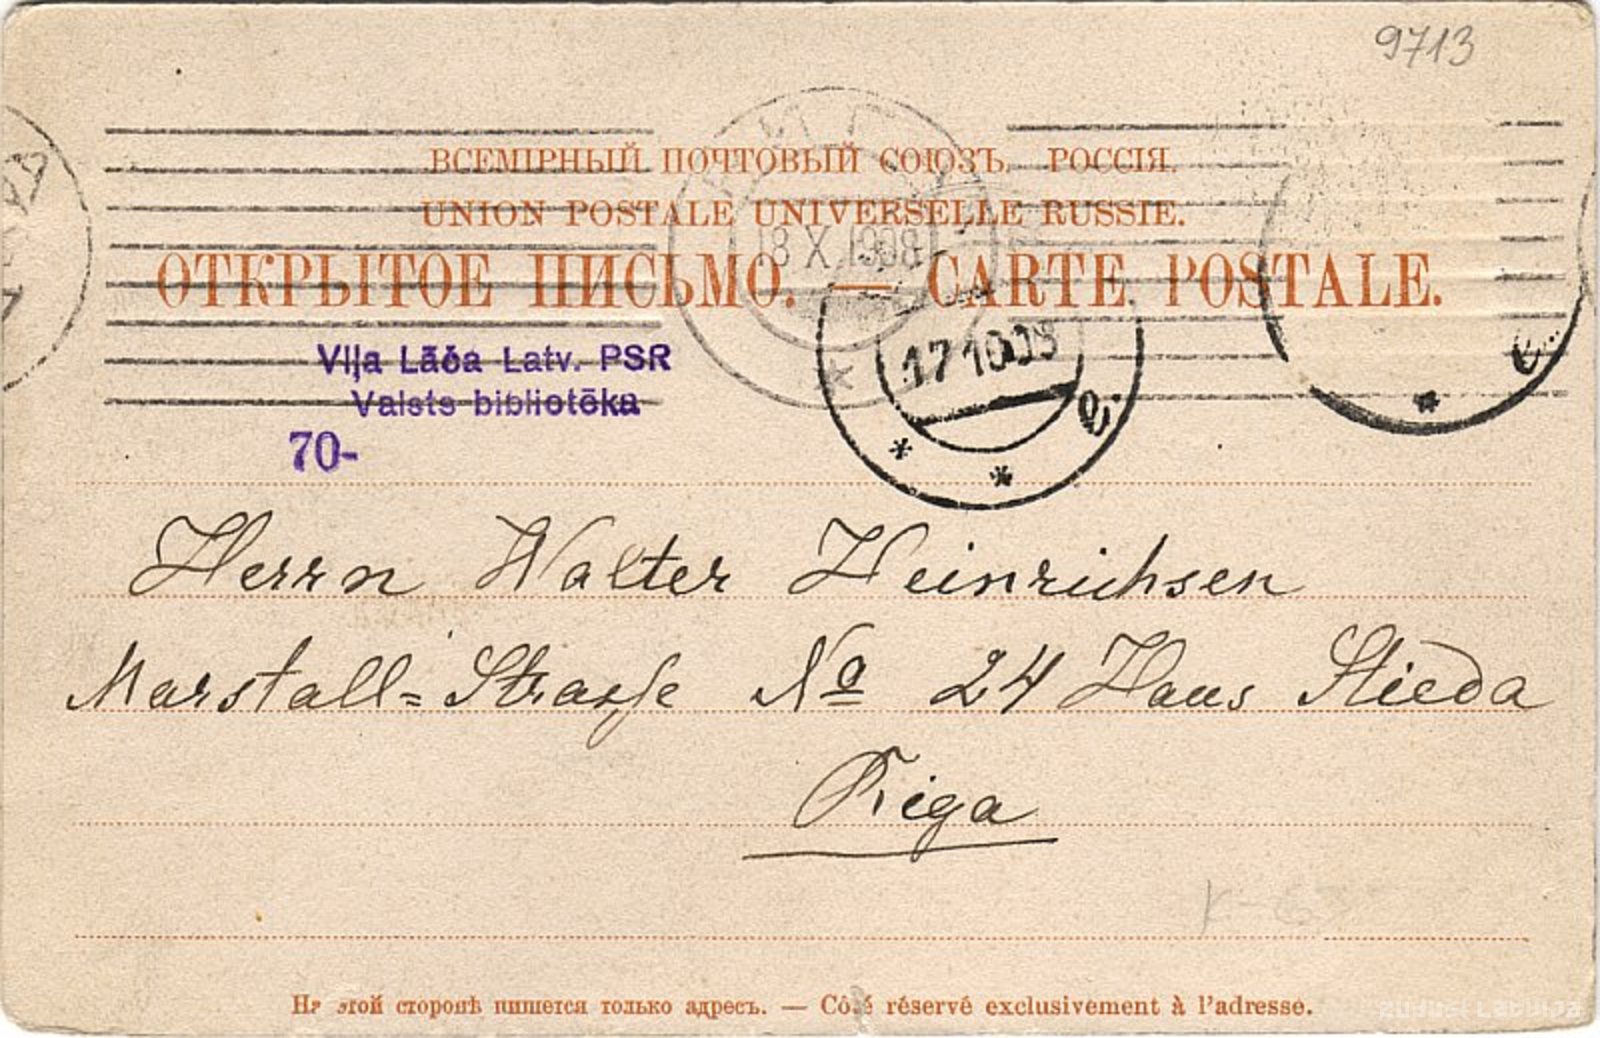 9713
ВСЕМІРНЫЙ ПОЧТОВЫЙ СОЮЗЪ. РОССІЯ.
UNION POSTALE UNIVERSELLE RUSSIE.
18 X 1908
ОТКРЫТОЕ ПИСЬМО. — CARTE POSTALE.
17 10 08
Viļa Lāča Latv. PSR
Valsts bibliotēka
70-
Herrn Walter Heinrichsen
Marstall=Strasse No 24 Haus Stieda
Riga
На этой сторонѣ пишется только адресъ. — Côté réservé exclusivement à l'adresse.
zudusī Latvija